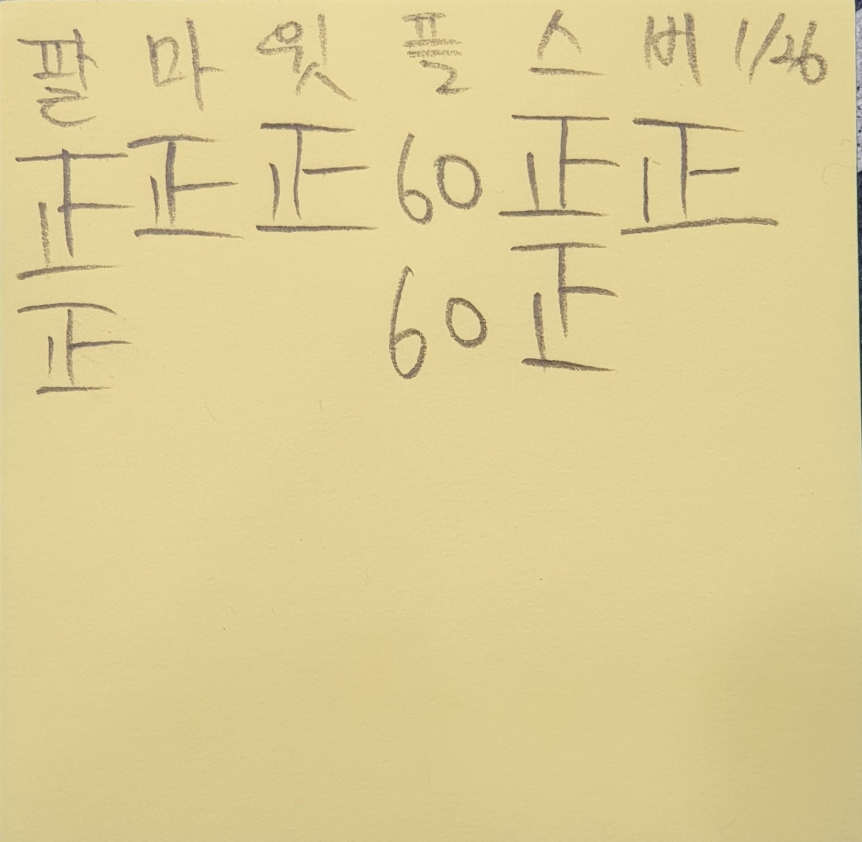 팔 마 윗 플 스 버 1/26
正 正 正 60 正 正
正 60 正